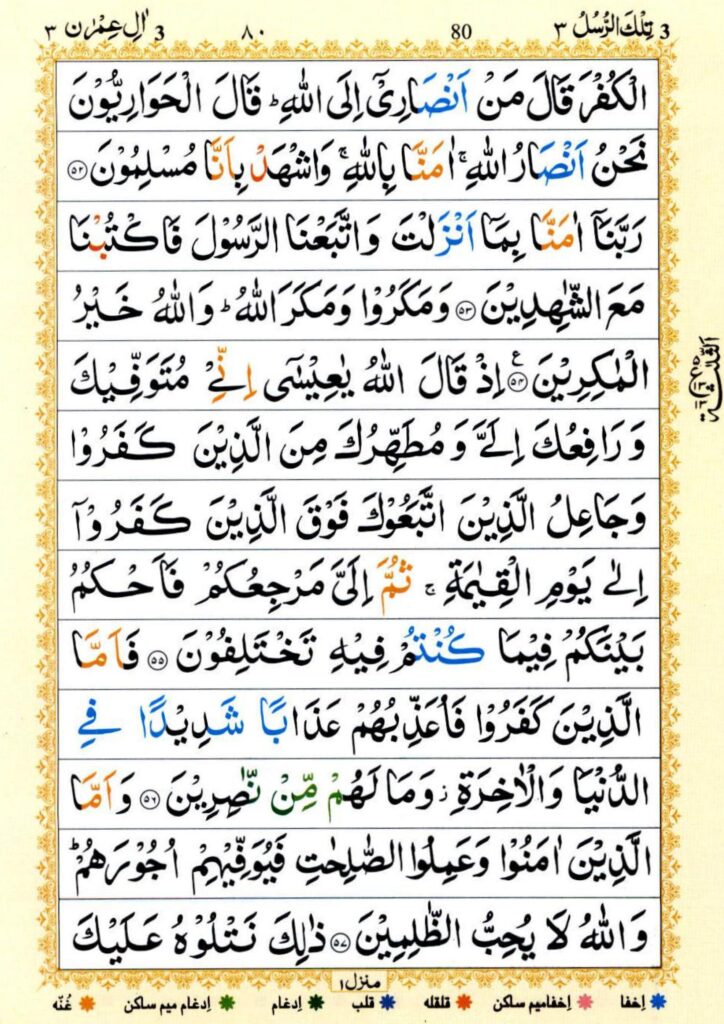 3 تِلْكَ الرُّسُلُ ٣ 80 ٨٠ 3 اٰلِ عِمْرٰن ٣
الْكُفْرَ قَالَ مَنْ اَنْصَارِیْۤ اِلَى اللّٰهِ ؕ قَالَ الْحَوَارِیُّوْنَ
نَحْنُ اَنْصَارُ اللّٰهِ ۚ اٰمَنَّا بِاللّٰهِ ۚ وَاشْهَدْ بِاَنَّا مُسْلِمُوْنَ ﴿۵۲﴾
رَبَّنَاۤ اٰمَنَّا بِمَاۤ اَنْزَلْتَ وَاتَّبَعْنَا الرَّسُوْلَ فَاكْتُبْنَا
مَعَ الشّٰهِدِیْنَ ﴿۵۳﴾ وَمَكَرُوْا وَمَكَرَ اللّٰهُ ؕ وَاللّٰهُ خَیْرُ
الْمٰكِرِیْنَ ﴿۵۴﴾ ع اِذْ قَالَ اللّٰهُ یٰعِیْسٰۤی اِنِّیْ مُتَوَفِّیْكَ
وَرَافِعُكَ اِلَیَّ وَمُطَهِّرُكَ مِنَ الَّذِیْنَ كَفَرُوْا
وَجَاعِلُ الَّذِیْنَ اتَّبَعُوْكَ فَوْقَ الَّذِیْنَ كَفَرُوْۤا
اِلٰی یَوْمِ الْقِیٰمَةِ ۚ ثُمَّ اِلَیَّ مَرْجِعُكُمْ فَاَحْكُمُ
بَیْنَكُمْ فِیْمَا كُنْتُمْ فِیْهِ تَخْتَلِفُوْنَ ﴿۵۵﴾ فَاَمَّا
الَّذِیْنَ كَفَرُوْا فَاُعَذِّبُهُمْ عَذَابًا شَدِیْدًا فِی
الدُّنْیَا وَالْاٰخِرَةِ ؗ وَمَا لَهُمْ مِّنْ نّٰصِرِیْنَ ﴿۵۶﴾ وَاَمَّا
الَّذِیْنَ اٰمَنُوْا وَعَمِلُوا الصّٰلِحٰتِ فَیُوَفِّیْهِمْ اُجُوْرَهُمْ ؕ
وَاللّٰهُ لَا یُحِبُّ الظّٰلِمِیْنَ ﴿۵۷﴾ ذٰلِكَ نَتْلُوْهُ عَلَیْكَ
منزل ۱
اِخفا اِخفامیم ساکن قلقله قلب اِدغام اِدغام میم ساکن غُنّه